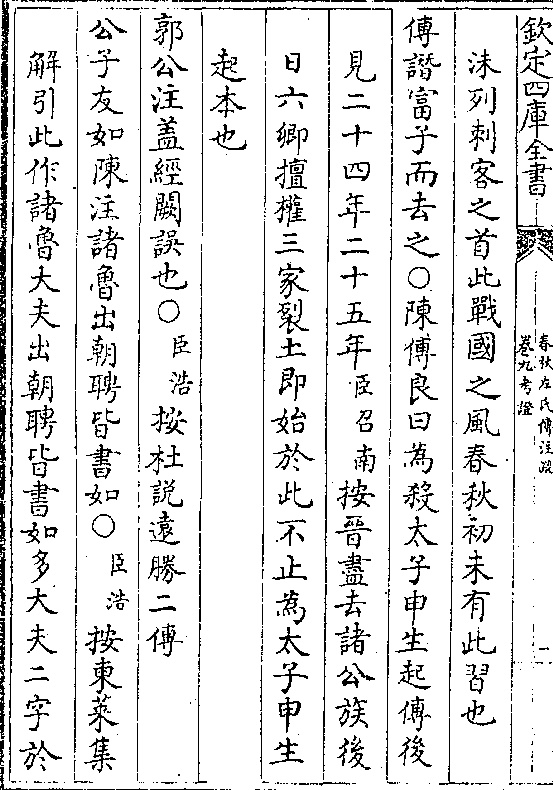 欽定四庫全書
春秋左氏傳注疏
卷九考證
一
沬列刺客之首此戰國之風春秋初未有此習也
傳譖富子而去之○陳傅良曰為殺太子申生起傳後
見二十四年二十五年臣召南按晉盡去諸公族後
日六卿擅權三家裂土即始於此不止為太子申生
起本也
郭公注盖經闕誤也○臣浩按杜說遠勝二傳
公子友如陳注諸魯出朝聘皆書如○臣浩按東萊集
解引此作諸魯大夫出朝聘皆書如多大夫二字於